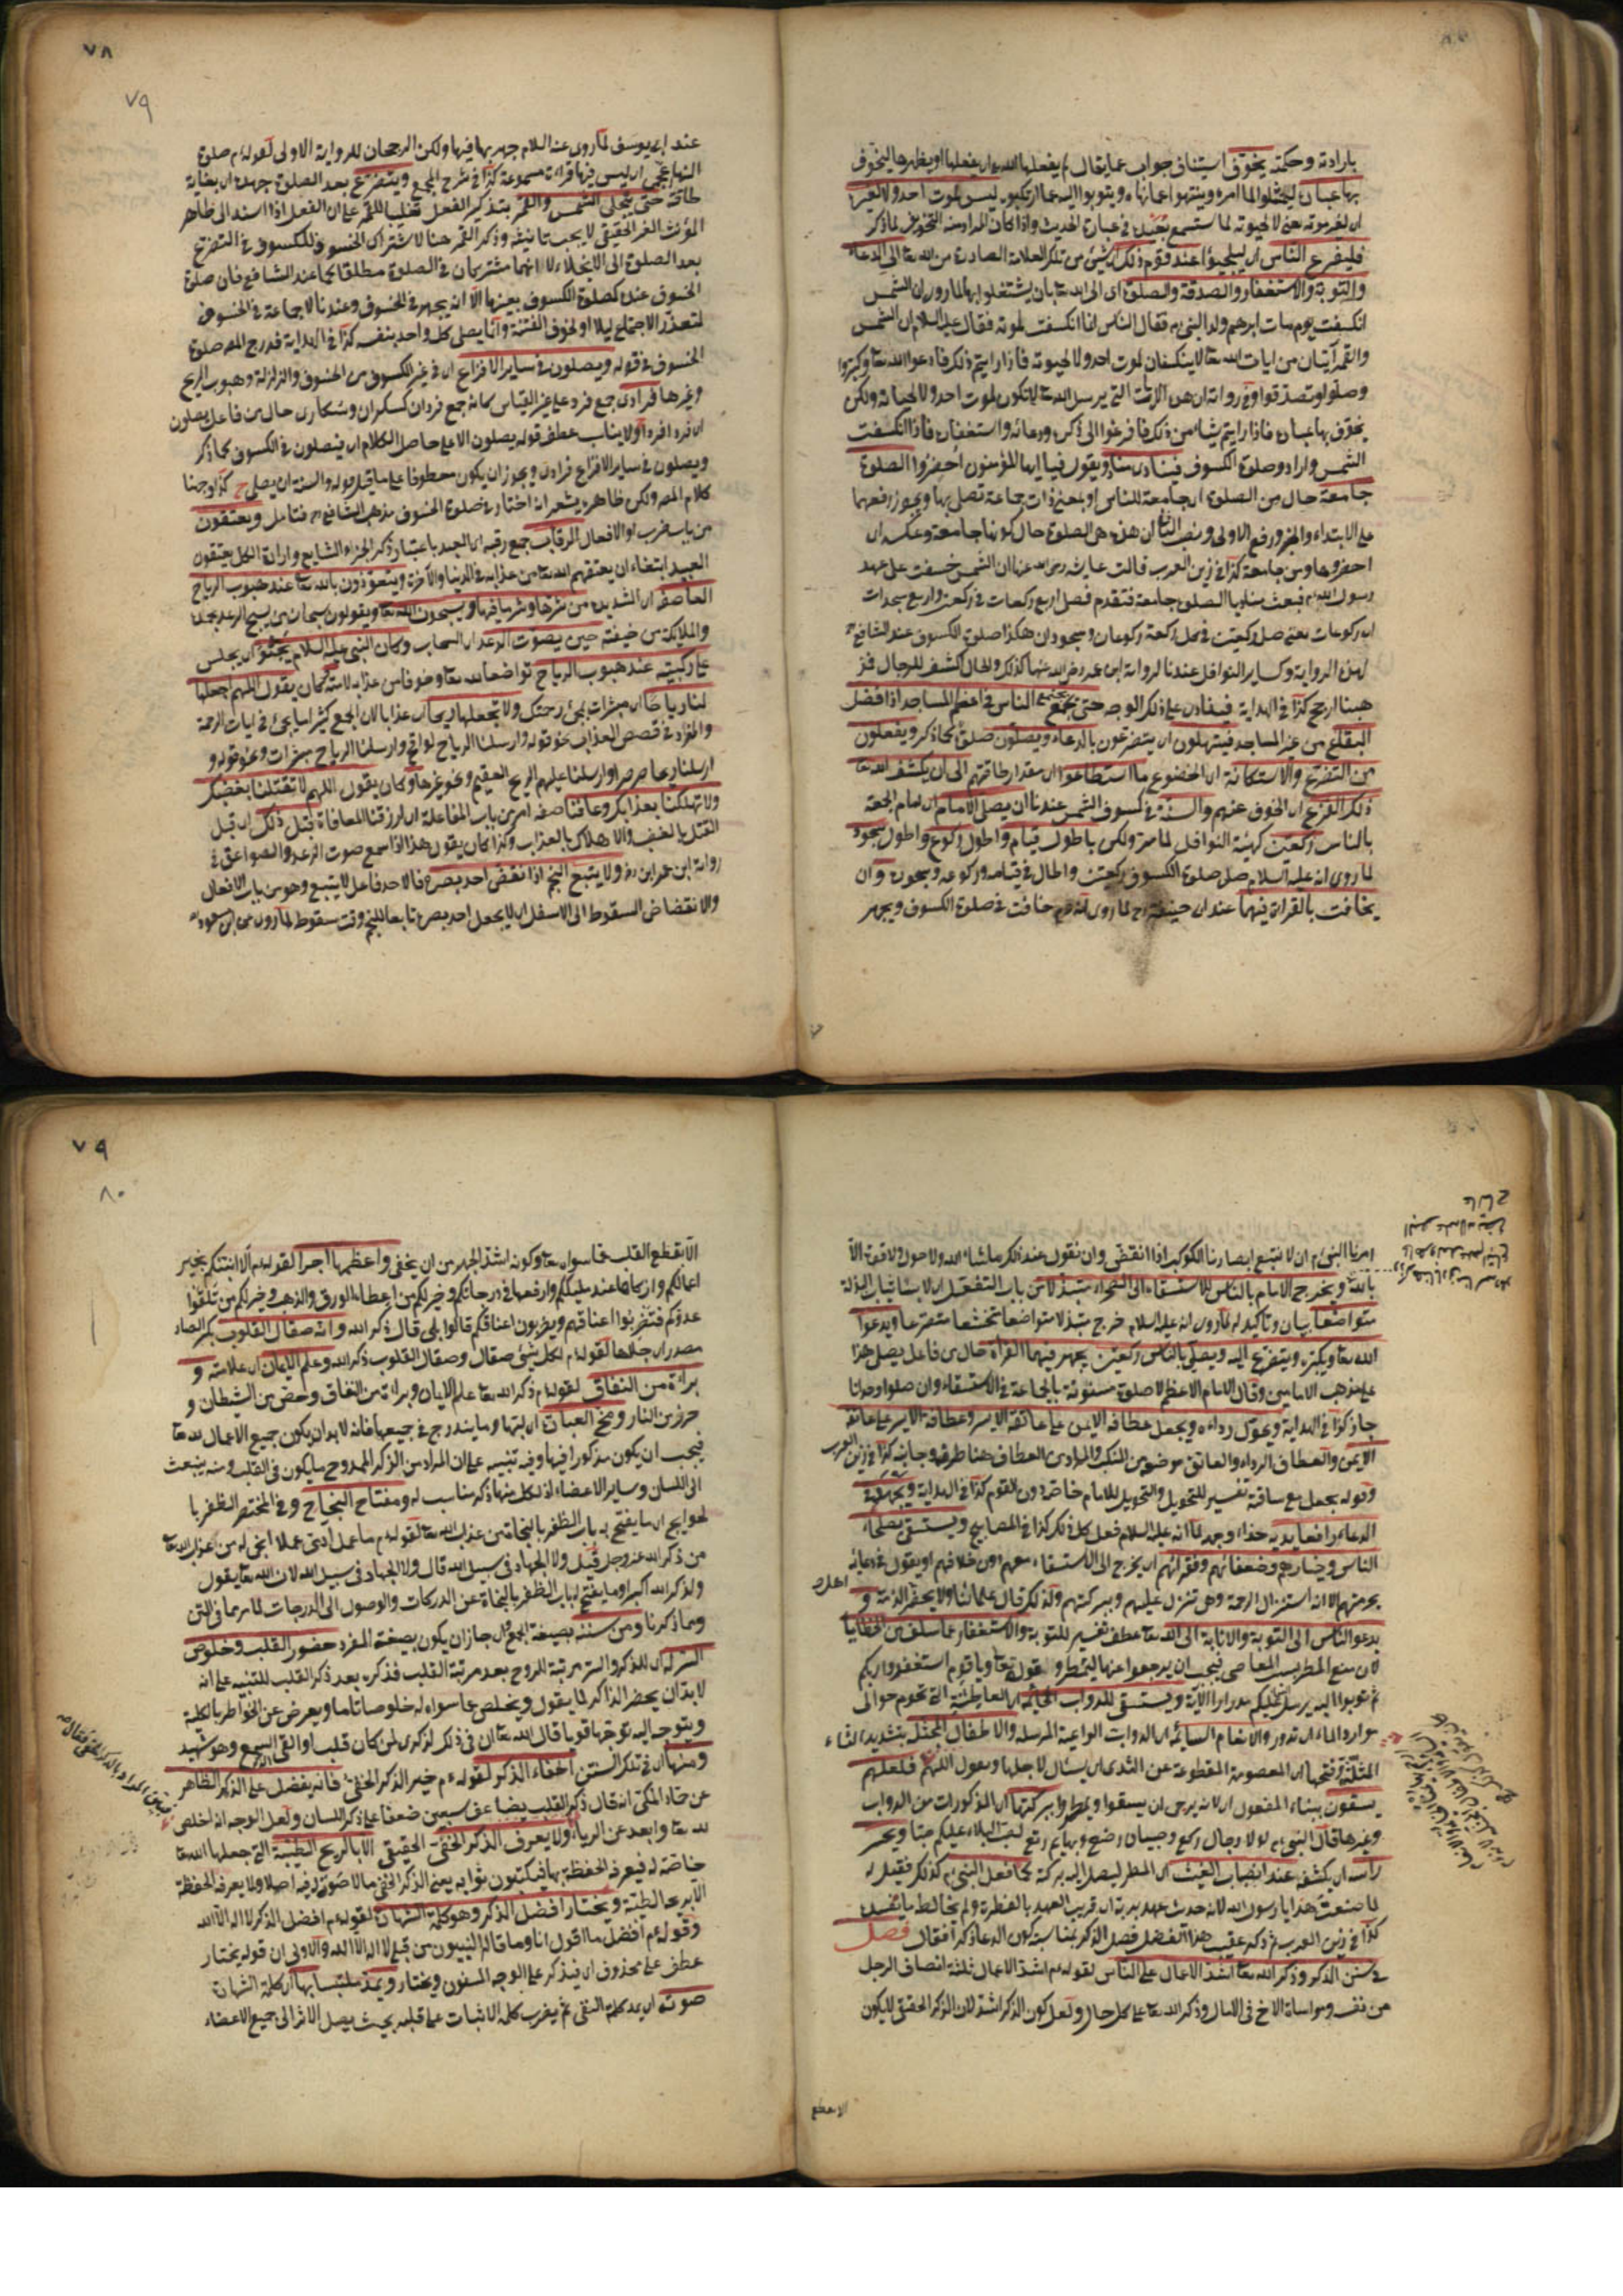 بارادته وحكمته يخوّف استيناف جواب عما يقال لم يفعلها الله اى يفعلها او يظهرها ليخوف
بها عباده ليمتثلوا لما امره وينتهوا عما نهاه ويتوبوا اليه مما ارتكبوه ليس لموت احد ولا لغيره
اى لغير موته يعنى لا لحيوته لما ستسمع بعيده فى عبارة الحديث واذا كان المراد منه التخويف لما ذكر
فليفزع الناس اى ليلجيؤا عند وقوع ذلك اى شيئ من تلك العلامة الصادرة من الله تعا الى الدعاء
والتوبة والاستغفار والصدقة والصلوة اى الى الله تعا بان يشتغلوا بها لما روى ان الشمس
انكسفت يوم مات ابرهيم ولد النبى م فقال الناس انما انكسفت لموته فقال عليه السلام ان الشمس
والقمر آيتان من ايات الله تعا لا ينكسفان لموت احد ولا لحيوته فاذا رايتم ذلك فادعوا الله تعا وكبروا
وصلوا وتصدقوا وفى رواية ان هذه الايات التى يرسل الله تعا لا تكون لموت احد ولا لحياته ولكن
يخوّف بها عباده فاذا رايتم شيئا من ذلك فافزعوا الى ذكره ودعائه واستغفاره فاذا انكسفت
الشمس واراد وصلوة الكسوف فينادى مناد ويقول فيا ايها المؤمنون احضروا الصلوة
جامعة حال من الصلوة اى جامعة للناس او بمعنى ذات جماعة تصلى بها ويجوز رفعهما
على الابتداء والخبر ورفع الاولى ونصب الثانى اى هذه هى الصلوة حال كونها جامعة وعكسه اى
احضروها وهى جامعة كذا فى زين العرب قالت عايشة رضى الله عنها ان الشمس خسفت على عهد
رسول الله م فبعث مناديا الصلوة جامعة فتقدم فصلى اربع ركعات فى ركعتين واربع سجدات
اى ركوعات يعنى صلى ركعتين فى كل ركعة ركوعان وسجودان هكذا صلوة الكسوف عند الشافعى
لهذه الرواية وكساير النوافل عندنا لرواية ابن عمر رضى الله عنهما كذلك والحال اكشف للرجال فى
هبنا ارجح كذا فى الهداية فينادى على ذلك الوجه حتى يجتمع الناس فى اعظم المساجد اذ افضل
البقاع من غير المساجد فيبتهلون اى يتضرعون بالدعاء ويصلون صلوة كما ذكر ويفعلون
من التضرع والاستكانة اى الخضوع ما استطاعوا اى مقدار طاقتهم الى ان يكشف الله تعا
ذلك الفزع اى الخوف عنهم والسنة فى كسوف الشمس عندنا ان يصلى الامام اى امام الجمعة
بالناس ركعتين كهيئة النوافل لما مر ولكن باطول قيام واطول ركوع واطول سجود
لما روى انه عليه السلام صلى صلوة الكسوف ركعتين واطال فى قيامه وركوعه وسجوده وان
يخافت بالقراة فيهما عند ابى حنيفة رح لما روى انه م خافت فى صلوة الكسوف ويجهر
٧٨
٧٩
عند ابى يوسف لما روى عنه السلام جهر بها فيها ولكن الرجحان للرواية الاولى لقوله م صلوة
النهار عجمى اى ليس فيها قراءة مسموعة كذا فى شرح المجمع ويتضرع بعد الصلوة جهده اى بغاية
طاقته حتى ينجلى الشمس والقمر بتذكير الفعل تغليبا للقمر على ان الفعل اذا اسند الى ظاهر
المؤنث الغير الحقيقى لا يجب تانيثه وذكر القمر هنا لاشتراك الخسوف للكسوف فى التضرع
بعد الصلوة الى الانجلاء لا انهما مشتركان فى الصلوة مطلقا كما عند الشافعى فان صلوة
الخسوف عنده كصلوة الكسوف بعينها الا انه يجهر فى الخسوف وعندنا لا جماعة فى الخسوف
لتعذر الاجتماع ليلا او لخوف الفتنة وانما يصلى كل واحد بنفسه كذا فى الهداية فدرج المص صلوة
الخسوف فى قوله ويصلون فى ساير الافزاع اى فى غير الكسوف من الخسوف والزلزلة وهبوب الريح
وغيرها فرادى جمع فرد على غير القياس كانه جمع فردان كسكران وسكارى حال من فاعل يصلون
اى فردا فردا ولا يناسب عطف قوله يصلون الا على حاصل الكلام اى فيصلون فى الكسوف كما ذكر
ويصلون فى ساير الافزاع فرادى ويجوز ان يكون معطوفا على ما قبل قوله والسنة ان يصلى
كلام المص ولكن ظاهره يشعر انه اختار فى صلوة الخسوف مذهب الشافعى فتامل ويعتقون
من باب ضرب او الافعال الرقاب جمع رقبة اى العبيد باعتبار ذكر الجزء الشايع وارادة الكل يعتقون
العبيد ابتغاء ان يعتقهم الله تعا من عذابه فى الدنيا والآخرة ويتعوذون بالله تعا عند هبوب الرياح
العاصفة اى الشديدة من شرها وشر ما فيها ويسبحون الله تعا ويقولون سبحان من يسبح الرعد بحمده
والملائكة من خيفته حين يصوت الرعد اى السحاب وكان النبى عليه السلام يجثو اى يجلس
على ركبتيه عند هبوب الرياح تواضعا لله تعا وخوفا من عذابه لامته كان يقول اللهم اجعلها
لنا رياحا اى مبشرات بمجئ رحمتك ولا تجعلها ريحا اى عذابا لان الجمع كثيرا ما يجئ فى ايات الرحمة
والمفرد فى قصص العذاب نحو قوله وارسلنا الرياح لواقح وارسلنا الرياح مبشرات ونحو قوله و
ارسلنا ريحا صرصرا وارسلنا عليهم الريح العقيم ونحو غيرها وكان يقول اللهم لا تقتلنا بغضبك
ولا تهلكنا بعذابك وعافنا صفة امر من باب المفاعلة اى ارزقنا المعافاة قبل ذلك اى قبل
القتل بالغضب والاهلاك بالعذاب وكذا كان يقول هذا اذا سمع صوت الرعد والصواعق فى
رواية ابن عمر ابن ولا يتبع النجم اذا نقض احد بصره فالاحد فاعل لا يتبع وهو من باب الافعال
والانقضاض السقوط الى الاسفل اى لا يجعل احد بصره تابعا للنجم وقت سقوطه لما روى عن ابن مسعود
امرنا النبى م ان لا نتبع ابصارنا الكوكب اذا انقضى وان نقول عند ذلك ما شاء الله ولا حول ولا قوة الا
بالله ويخرج الامام بالناس للاستسقاء الى الصحراء متبذلا من باب التفعل اى لابسا ثياب البذلة
متواضعا بيان وتاكيد له لما روى انه عليه السلام خرج متبذلا متواضعا متخشعا متضرعا ويدعوا
الله تعا ويكبره ويتضرع اليه ويصلى بالناس ركعتين يجهر فيهما القراة حال من فاعل يصلى هذا
على مذهب الامامين وقال الامام الاعظم لا صلوة مسنونة بالجماعة فى الاستسقاء وان صلوا وحدانا
جاز كذا فى الهداية ويحول رداءه ويجعل عطافه الايمن على عاتقه الايسر وعطافه الايسر على عاتقه
الايمن والعطاف الرداء والعاتق موضع من المنكب والمراد من العطاف هنا طرفه وجانبه كذا فى زين العرب
وقوله يجعل مع ساقته تفسير للتحويل والتحويل للامام خاصة دون القوم كذا فى الهداية ويجتهد فى
الدعاء رافعا يديه حذاء وجهه لما انه عليه السلام فعل كل ذلك كذا فى المصابيح ويستسقى بصلحاء
الناس وخيارهم وضعفائهم وفقرائهم اى يخرج الى الاستسقاء معهم دون خلافهم او يقول فى دعائه
بحرمتهم الا انه استنزال الرحمة وهى تنزل عليهم وببركتهم ولذلك قال علمائنا ولا يحضر الذمة و
يدعو الناس الى التوبة والانابة الى الله تعا عطف تفسير للتوبة والاستغفار عما سلف من الخطايا
لان منع المطر بسبب المعاصى فيجب ان يرجعوا عنها ليمطروا لقوله تعا ويا قوم استغفروا ربكم
ثم توبوا اليه يرسل السماء عليكم مدرارا الآية ويستسقى للدواب الحائمة اى العطاش التى تحوم حوالى
موارد الماء اى تدور والانعام السائمة اى الدواب الواعية المرسلة والاطفال المحثل بتشديد الثاء
المثلثة وفتحها اى المعصومة المقطوعة عن الثدى اى يسال لاجلها ويقول اللهم فلعلهم
يسقون ببناء المفعول اى لانه يرجى ان يسقوا ويمطروا ببركتها اى المذكورات من الدواب
وغيرها قال النبى م لولا رجال ركع وصبيان رضع وبهايم رتع لصب البلاء عليكم صبا ويحسر
راسه اى يكشفه عند انصباب الغيث اى المطر ليصل اليه بركة كما فعل النبى م كذلك فقيل له
لما صنعت هذا يا رسول الله لانه حدث عهد بربه اى قريب العهد بالفطرة ولم يخالط ما يفسده
كذا فى زين العرب ثم ذكر عقيب هذا الفصل فصل الذكر لمناسبة كون الدعا ذكرا فقال فصل
فى سنن الذكر وذكر الله تعا اشد الاعمال على الناس لقوله م اشد الاعمال ثلثة انصاف الرجل
من نفسه ومواساة الاخ فى المال وذكر الله تعا على كل حال ولعل كون الذكر اشد لان الذكر الحقيقى لا يكون
٧٩
٨٠
الا بقطع القلب عما سواه تعا وكونه اشد الجهر من ان يخفى واعظمها اجرا لقوله م الا انبئكم بخير
اعمالكم وازكاها عند مليككم وارفعها فى درجاتكم وخير لكم من اعطاء الورق والذهب وخير لكم من تلقوا
عدوكم فتضربوا اعناقهم ويضربون اعناقكم قالوا بلى قال ذكر الله وانه صقال القلوب بكسر الصاد
مصدر اى جلاها لقوله م لكل شيئ صقال وصقال القلوب ذكر الله وعلم الايمان اى علامته و
براءة من النفاق لقوله م ذكر الله تعا علم الايمان وبراءة من النفاق وحصن من الشيطان و
حرز من النار ومخ العبادة اى لبها وما يندرج فى جميعها فانه لا بد ان يكون جميع الاعمال لله تعا
فيجب ان يكون مذكورا فيها وفيه تنبيه على ان المراد من الذكر الممدوح ما يكون فى القلب ومنه ينبعث
الى اللسان وساير الاعضاء اذ لكل منها ذكر مناسب له ومفتاح النجاح وفى المختصر الظفر با
لحوايج اى ما يفتح به باب الظفر بالنجاة من عذاب الله تعا لقوله م ما عمل ادمى عملا انجى له من عذاب الله تعا
من ذكر الله عز وجل قيل ولا الجهاد فى سبيل الله قال ولا الجهاد فى سبيل الله لان الله تعا يقول
ولذكر الله اكبر او ما يفتح به باب الظفر بالنجاة عن الدركات والوصول الى الدرجات لما مر ما فى المتن
وما ذكرنا ومن سننه بصيغة الجمع وان جاز ان يكون بصيغة المفرد حضور القلب وخلوص
السر له اى للذكر والسر مرتبة للروح بعد مرتبة القلب فذكره بعد ذكر القلب للتنبيه على انه
لا بد ان يحضر الذاكر لما يقول ويخلص عما سواه له خلوصا تاما ويعرض عن الخواطر بالكلية
ويتوجه اليه توجها قويا قال الله تعا ان فى ذلك لذكرى لمن كان قلب او القى السمع وهو شهيد
ومنها اى فى تلك السنن اخفاء الذكر لقوله م خير الذكر الخفى فانه يفضل على الذكر الظاهر
عن حماد المكى انه قال ذكر القلب يضاعف سبعين ضعفا على ذكر اللسان ولعل الوجه انه اخلص
لله تعا وابعد عن الريا ولا يعرف الذكر الخفى الحقيقى الا بالريح الطيبة التى جعلها الله تعا
خاصة له فيعرفه الحفظة بها فيكتبون ثوابه يعنى الذكر الخفى ما لا صوت فيه اصلا ولا يعرفه الحفظة
الا بريحه الطيبة ويختار افضل الذكر وهو كلمة الشهادة لقوله م افضل الذكر لا اله الا الله
وقوله م افضل ما اقول انا وما قاله النبيون من قبلى لا اله الا الله والاولى ان قوله يختار
عطف على محذوف اى فيذكر على الوجه المسنون ويختار ويمد ملتبسا بها اى كلمة الشهادة
صوته اى يمد كلمة النفى ثم يضرب كلمة الاثبات على قلبه بحيث يصل الاثر الى جميع الاعضاء